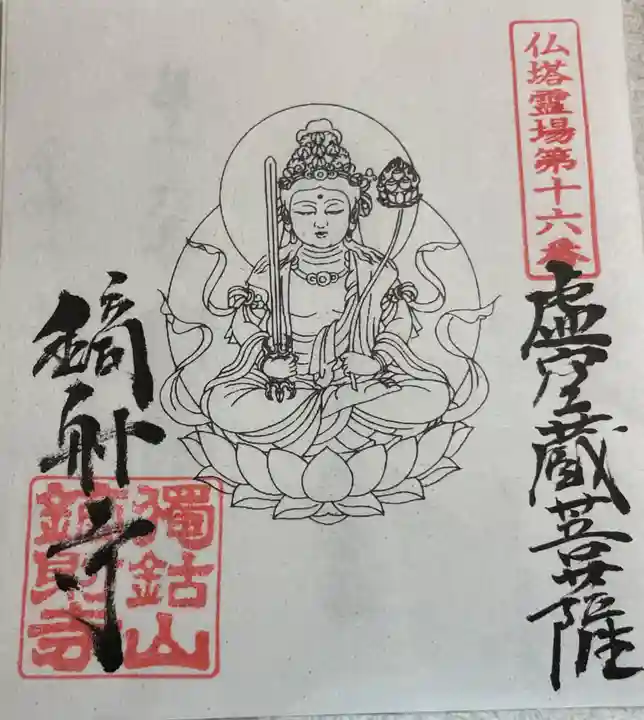 仏塔霊場第十六番
虚空蔵菩薩
鏑射寺
獨鈷山
鏑射寺